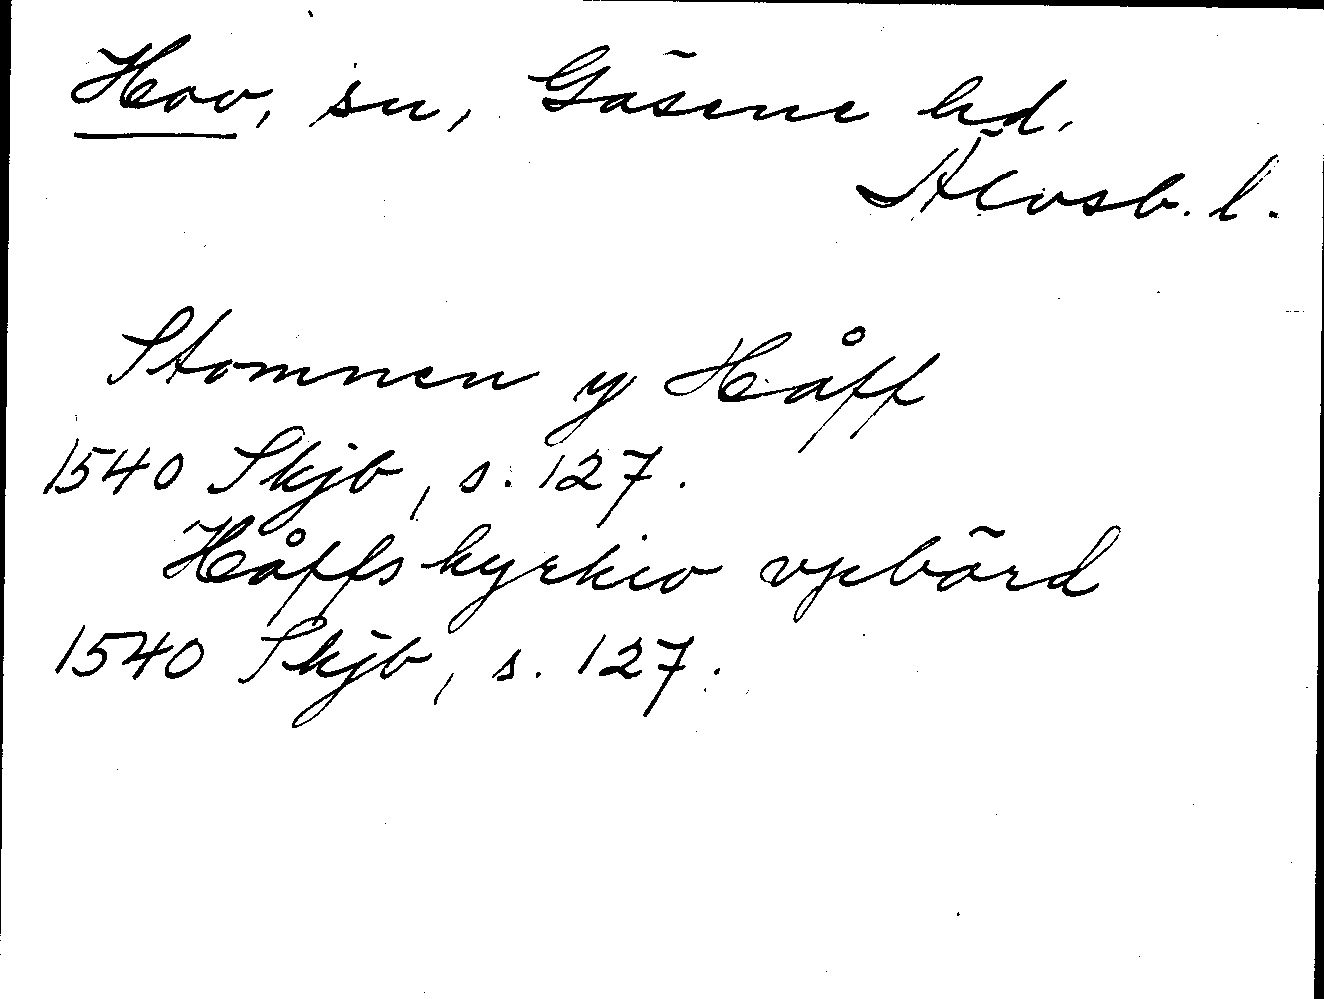 Hov, sn, Gäsene hd.
Älvsb. l.
Stomnen y Håff
1540 Skjb, s. 127.
Håffs kyrkio vpbörd
1540 Skjb, s. 127.